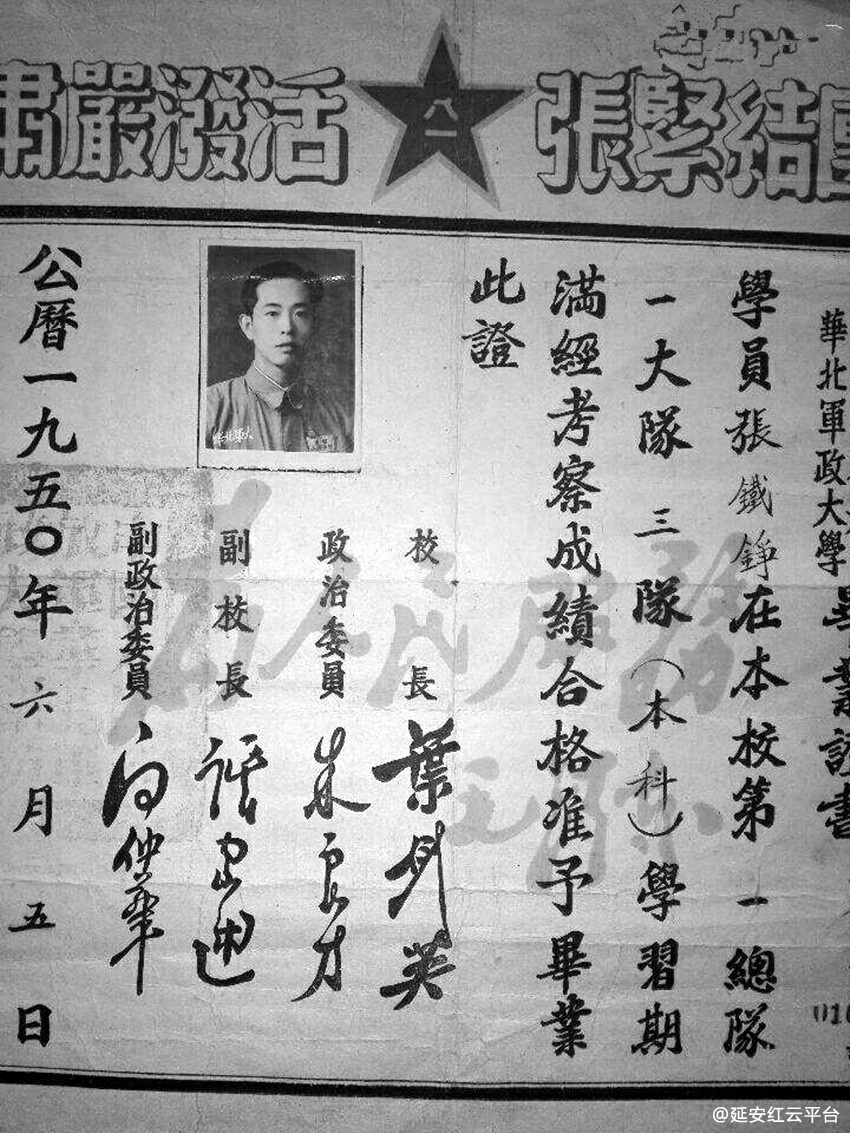 團結緊張
八一
活潑嚴肅
華北軍政大學
畢業證書
學員張鐵錚在本校第一總隊
一大隊三隊（本科）學習期
滿經考察成績合格准予畢業
此證
校長 葉劍英
政治委員 朱良才
副校長 譚家述
副政治委員 向仲華
公曆一九五〇年六月五日
華北軍大
為人民服務
@延安红云平台